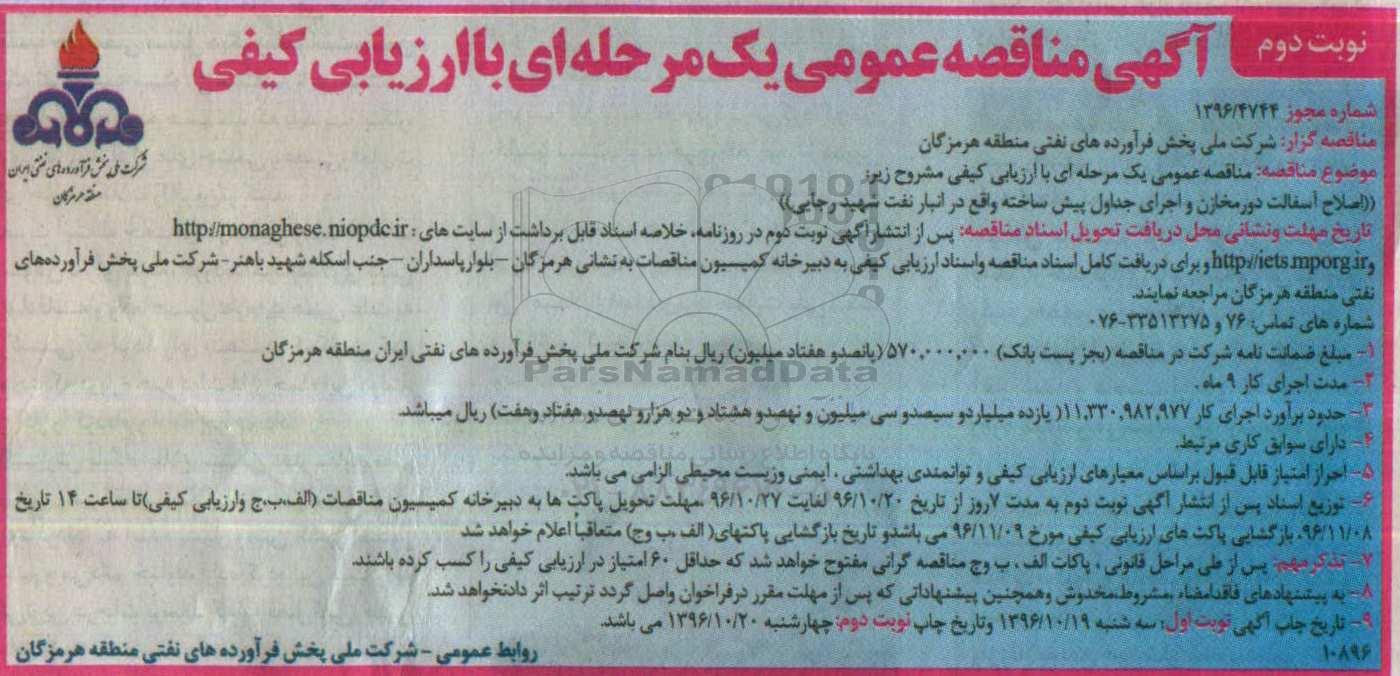 نوبت دوم
آگهی مناقصه عمومی یک مرحله ای با ارزیابی کیفی
شرکت ملی پخش فرآورده های نفتی ایران
منطقه هرمزگان
شماره مجوز ۱۳۹۶/۴۷۴۴
مناقصه گزار: شرکت ملی پخش فرآورده های نفتی منطقه هرمزگان
موضوع مناقصه: مناقصه عمومی یک مرحله ای با ارزیابی کیفی مشروح زیر:
((اصلاح آسفالت دورمخازن و اجرای جداول پیش ساخته واقع در انبار نفت شهید رجایی))
تاریخ مهلت ونشانی محل دریافت تحویل اسناد مناقصه: پس از انتشارآگهی نوبت دوم در روزنامه، خلاصه اسناد قابل برداشت از سایت های : http://monaghese.niopdc.ir
وhttp://iets.mporg.ir و برای دریافت کامل اسناد مناقصه واسناد ارزیابی کیفی به دبیرخانه کمیسیون مناقصات به نشانی هرمزگان –بلوارپاسداران –جنب اسکله شهید باهنر- شرکت ملی پخش فرآورده‌های
نفتی منطقه هرمزگان مراجعه نمایند.
شماره های تماس: ۷۶ و ۳۳۵۱۳۲۷۵-۰۷۶
۱- مبلغ ضمانت نامه شرکت در مناقصه (بجز پست بانک) ۵۷۰,۰۰۰,۰۰۰ (پانصدو هفتاد میلیون) ریال بنام شرکت ملی پخش فرآورده های نفتی ایران منطقه هرمزگان
۲- مدت اجرای کار ۹ ماه .
۳- حدود برآورد اجرای کار ۱۱,۳۳۰,۹۸۲,۹۷۷( یازده میلیاردو سیصدو سی میلیون و نهصدو هشتاد و دو هزارو نهصدو هفتاد وهفت) ریال میباشد.
۴- دارای سوابق کاری مرتبط.
۵- احراز امتیاز قابل قبول براساس معیارهای ارزیابی کیفی و توانمندی بهداشتی ، ایمنی وزیست محیطی الزامی می باشد.
۶- توزیع اسناد پس از انتشار آگهی نوبت دوم به مدت ۷روز از تاریخ ۹۶/۱۰/۲۰ لغایت ۹۶/۱۰/۲۷ ،مهلت تحویل پاکت ها به دبیرخانه کمیسیون مناقصات (الف،ب،ج وارزیابی کیفی)تا ساعت ۱۴ تاریخ
۹۶/۱۱/۰۸، بازگشایی پاکت های ارزیابی کیفی مورخ ۹۶/۱۱/۰۹ می باشدو تاریخ بازگشایی پاکتهای( الف ،ب وج) متعاقباً اعلام خواهد شد
۷- تذکرمهم: پس از طی مراحل قانونی ، پاکات الف ، ب وج مناقصه گرانی مفتوح خواهد شد که حداقل ۶۰ امتیاز در ارزیابی کیفی را کسب کرده باشند.
۸- به پیشنهادهای فاقدامضاء ،مشروط،مخدوش وهمچنین پیشنهاداتی که پس از مهلت مقرر درفراخوان واصل گردد ترتیب اثر دادنخواهد شد.
۹- تاریخ چاپ آگهی نوبت اول: سه شنبه ۱۳۹۶/۱۰/۱۹ وتاریخ چاپ نوبت دوم: چهارشنبه ۱۳۹۶/۱۰/۲۰ می باشد.
روابط عمومی - شرکت ملی پخش فرآورده های نفتی منطقه هرمزگان
۱۰۸۹۶
ParsNamadData
پایگاه اطلاع رسانی مناقصه و مزایده